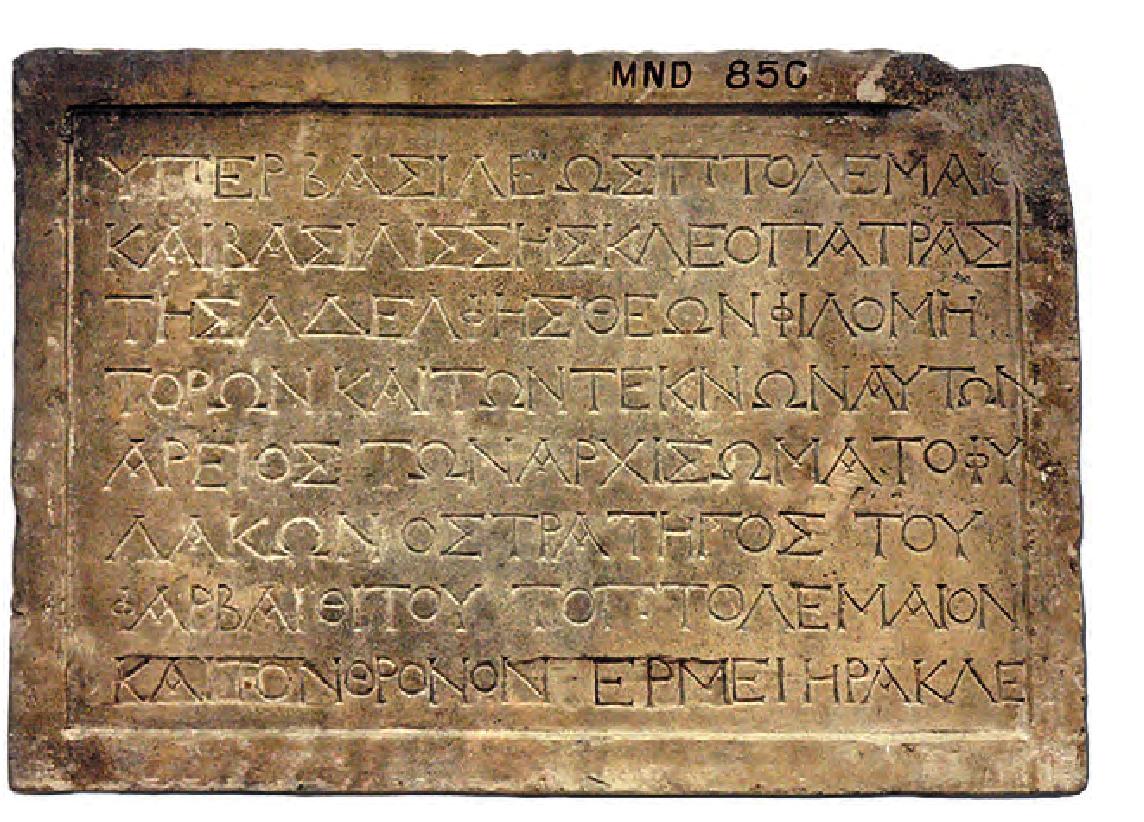 MND 850
ΥΠΕΡ ΒΑΣΙΛΕΩΣ ΠΤΟΛΕΜΑΙΟ
ΚΑΙ ΒΑΣΙΛΙΣΣΗΣ ΚΛΕΟΠΑΤΡΑΣ
ΤΗΣ ΑΔΕΛΦΗΣ ΘΕΩΝ ΦΙΛΟΜΗ
ΤΟΡΩΝ ΚΑΙ ΤΩΝ ΤΕΚΝΩΝ ΑΥΤΩΝ
ΑΡΕΙΟΣ ΤΩΝ ΑΡΧΙΣΩΜΑΤΟΦΥ
ΛΑΚΩΝ Ο ΣΤΡΑΤΗΓΟΣ ΤΟΥ
ΦΑΡΒΑΙΘΙΤΟΥ ΤΟΠ ΤΟΛΕΜΑΙΟΝ
ΚΑΙ ΤΟΝ ΘΡΟΝΟΝ ΕΡΜΕΙ ΗΡΑΚΛΕ